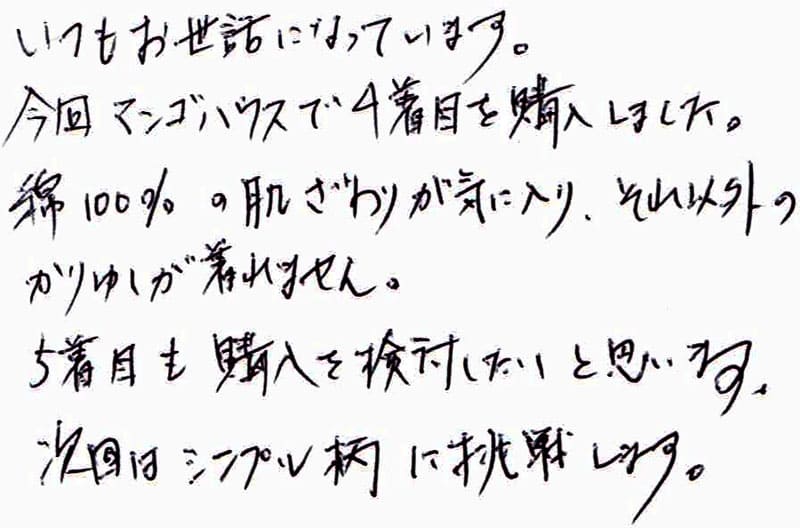 いつもお世話になっています。
今回マンゴハウスで4着目を購入しました。
綿100%の肌ざわりが気に入り、それ以外の
かりゆしが着れません。
5着目も購入を検討したいと思います。
次回はシンプル柄に挑戦します。